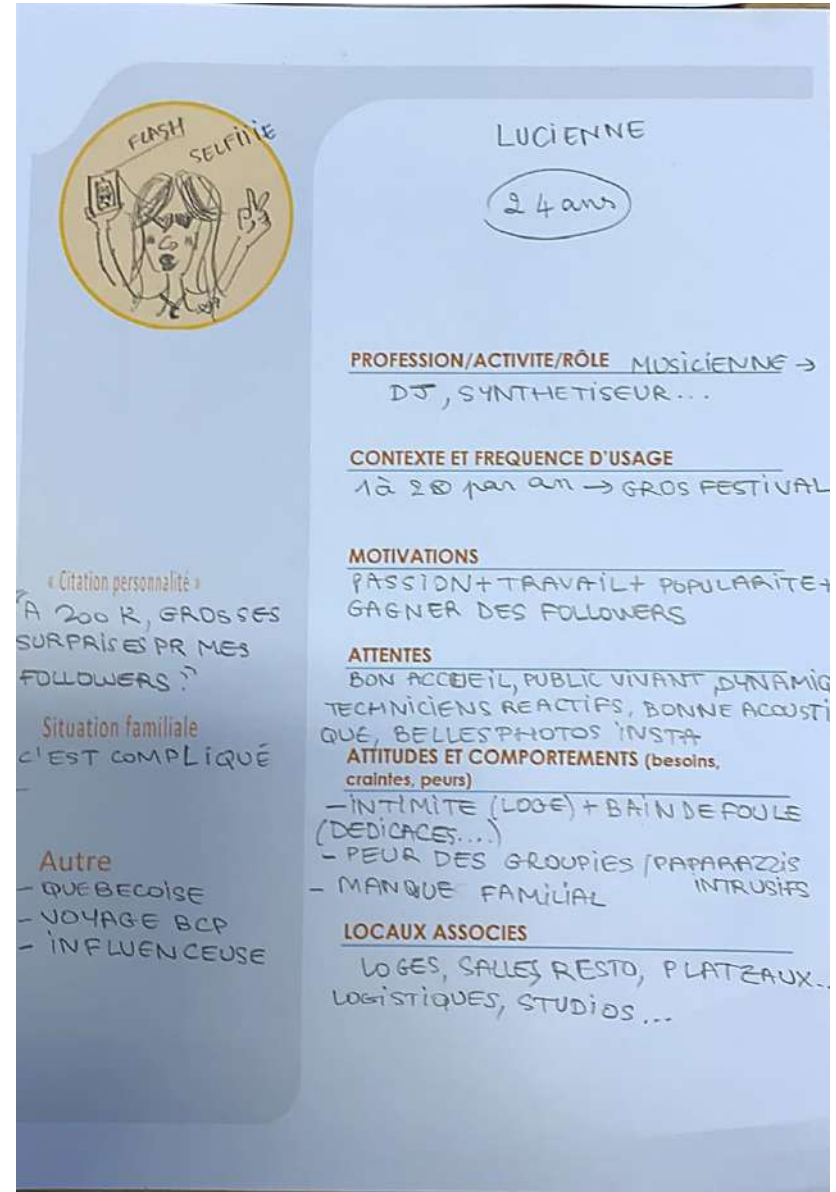 FLASH
SELFIIIE
LUCIENNE
24 ans
PROFESSION/ACTIVITE/RÔLE MUSICIENNE →
DJ, SYNTHETISEUR...
CONTEXTE ET FREQUENCE D'USAGE
1 à 2 par an → GROS FESTIVAL
MOTIVATIONS
PASSION + TRAVAIL + POPULARITE +
GAGNER DES FOLLOWERS
ATTENTES
BON ACCUEIL, PUBLIC VIVANT, DYNAMIQ
TECHNICIENS REACTIFS, BONNE ACOUSTI
QUE, BELLES PHOTOS INSTA
ATTITUDES ET COMPORTEMENTS (besoins,
craintes, peurs)
- INTIMITE (LOGE) + BAIN DE FOULE
(DEDICACES....)
- PEUR DES GROUPIES / PAPARAZZIS
INTRUSIFS
- MANQUE FAMILIAL
LOCAUX ASSOCIES
LOGES, SALLES RESTO, PLATEAUX...
LOGISTIQUES, STUDIOS...
« Citation personnalité »
"A 200 K, GROSSES
SURPRISES PR MES
FOLLOWERS."
Situation familiale
C'EST COMPLIQUÉ
-
Autre
- QUEBECOISE
- VOYAGE BCP
- INFLUENCEUSE